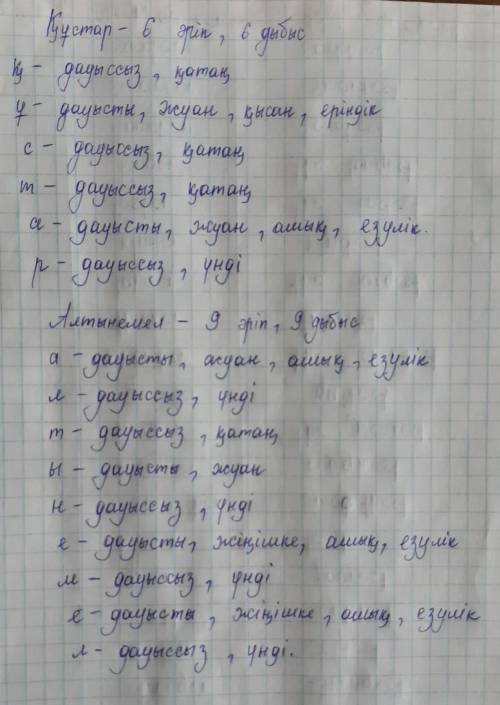 Құстар - 6 әріп, 6 дыбыс
қ - дауыссыз, қатаң
ұ - дауысты, жуан, қысаң, еріндік
с - дауыссыз, қатаң
т - дауыссыз, қатаң
а - дауысты, жуан, ашық, езулік.
р - дауыссыз, үнді
Алтынемел - 9 әріп, 9 дыбыс
а - дауысты, жуан, ашық, езулік
л - дауыссыз, үнді
т - дауыссыз, қатаң
ы - дауысты, жуан
н - дауыссыз, үнді
е - дауысты, жіңішке, ашық, езулік
м - дауыссыз, үнді
е - дауысты, жіңішке, ашық, езулік
л - дауыссыз, үнді.